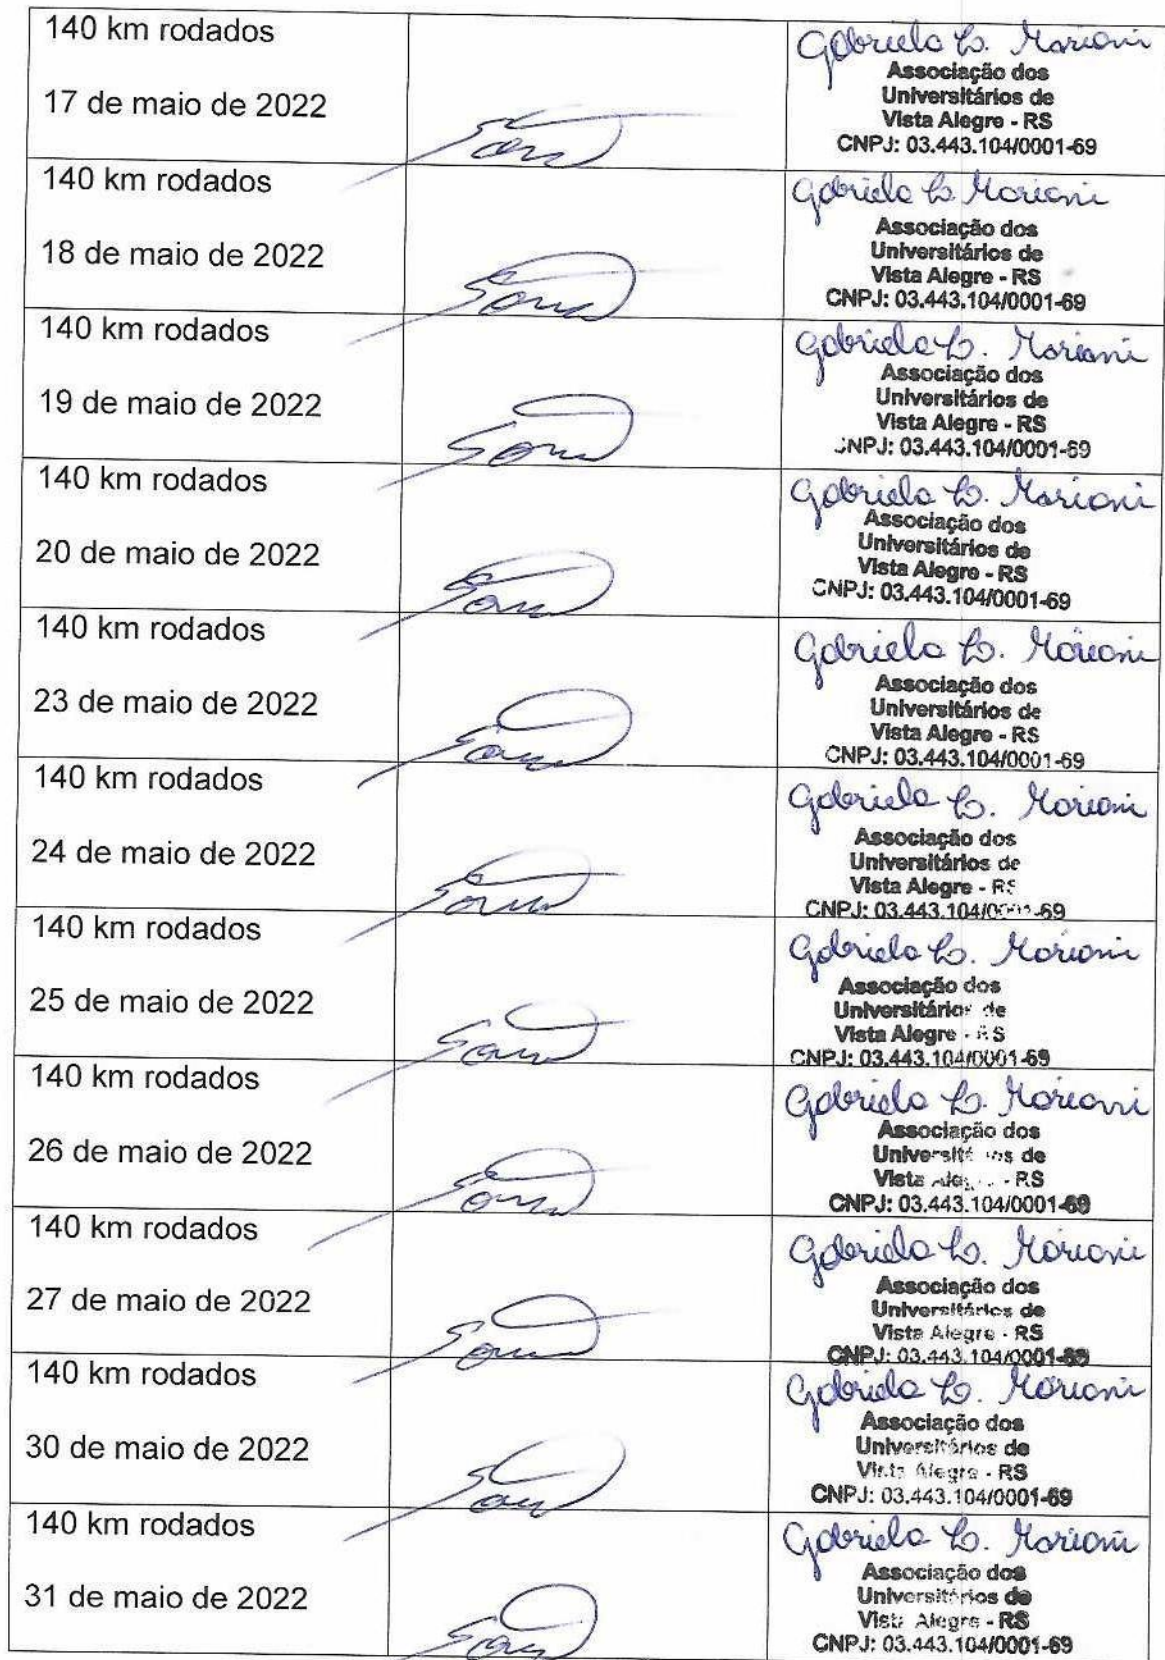 140 km rodados
17 de maio de 2022
Gabriela B. Mariani
Associação dos
Universitários de
Vista Alegre - RS
CNPJ: 03.443.104/0001-69
140 km rodados
18 de maio de 2022
Gabriela B. Mariani
Associação dos
Universitários de
Vista Alegre - RS
CNPJ: 03.443.104/0001-69
140 km rodados
19 de maio de 2022
Gabriela B. Mariani
Associação dos
Universitários de
Vista Alegre - RS
CNPJ: 03.443.104/0001-69
140 km rodados
20 de maio de 2022
Gabriela B. Mariani
Associação dos
Universitários de
Vista Alegre - RS
CNPJ: 03.443.104/0001-69
140 km rodados
23 de maio de 2022
Gabriela B. Mariani
Associação dos
Universitários de
Vista Alegre - RS
CNPJ: 03.443.104/0001-69
140 km rodados
24 de maio de 2022
Gabriela B. Mariani
Associação dos
Universitários de
Vista Alegre - RS
CNPJ: 03.443.104/0001-69
140 km rodados
25 de maio de 2022
Gabriela B. Mariani
Associação dos
Universitários de
Vista Alegre - RS
CNPJ: 03.443.104/0001-69
140 km rodados
26 de maio de 2022
Gabriela B. Mariani
Associação dos
Universitários de
Vista Alegre - RS
CNPJ: 03.443.104/0001-69
140 km rodados
27 de maio de 2022
Gabriela B. Mariani
Associação dos
Universitários de
Vista Alegre - RS
CNPJ: 03.443.104/0001-69
140 km rodados
30 de maio de 2022
Gabriela B. Mariani
Associação dos
Universitários de
Vista Alegre - RS
CNPJ: 03.443.104/0001-69
140 km rodados
31 de maio de 2022
Gabriela B. Mariani
Associação dos
Universitários de
Vista Alegre - RS
CNPJ: 03.443.104/0001-69